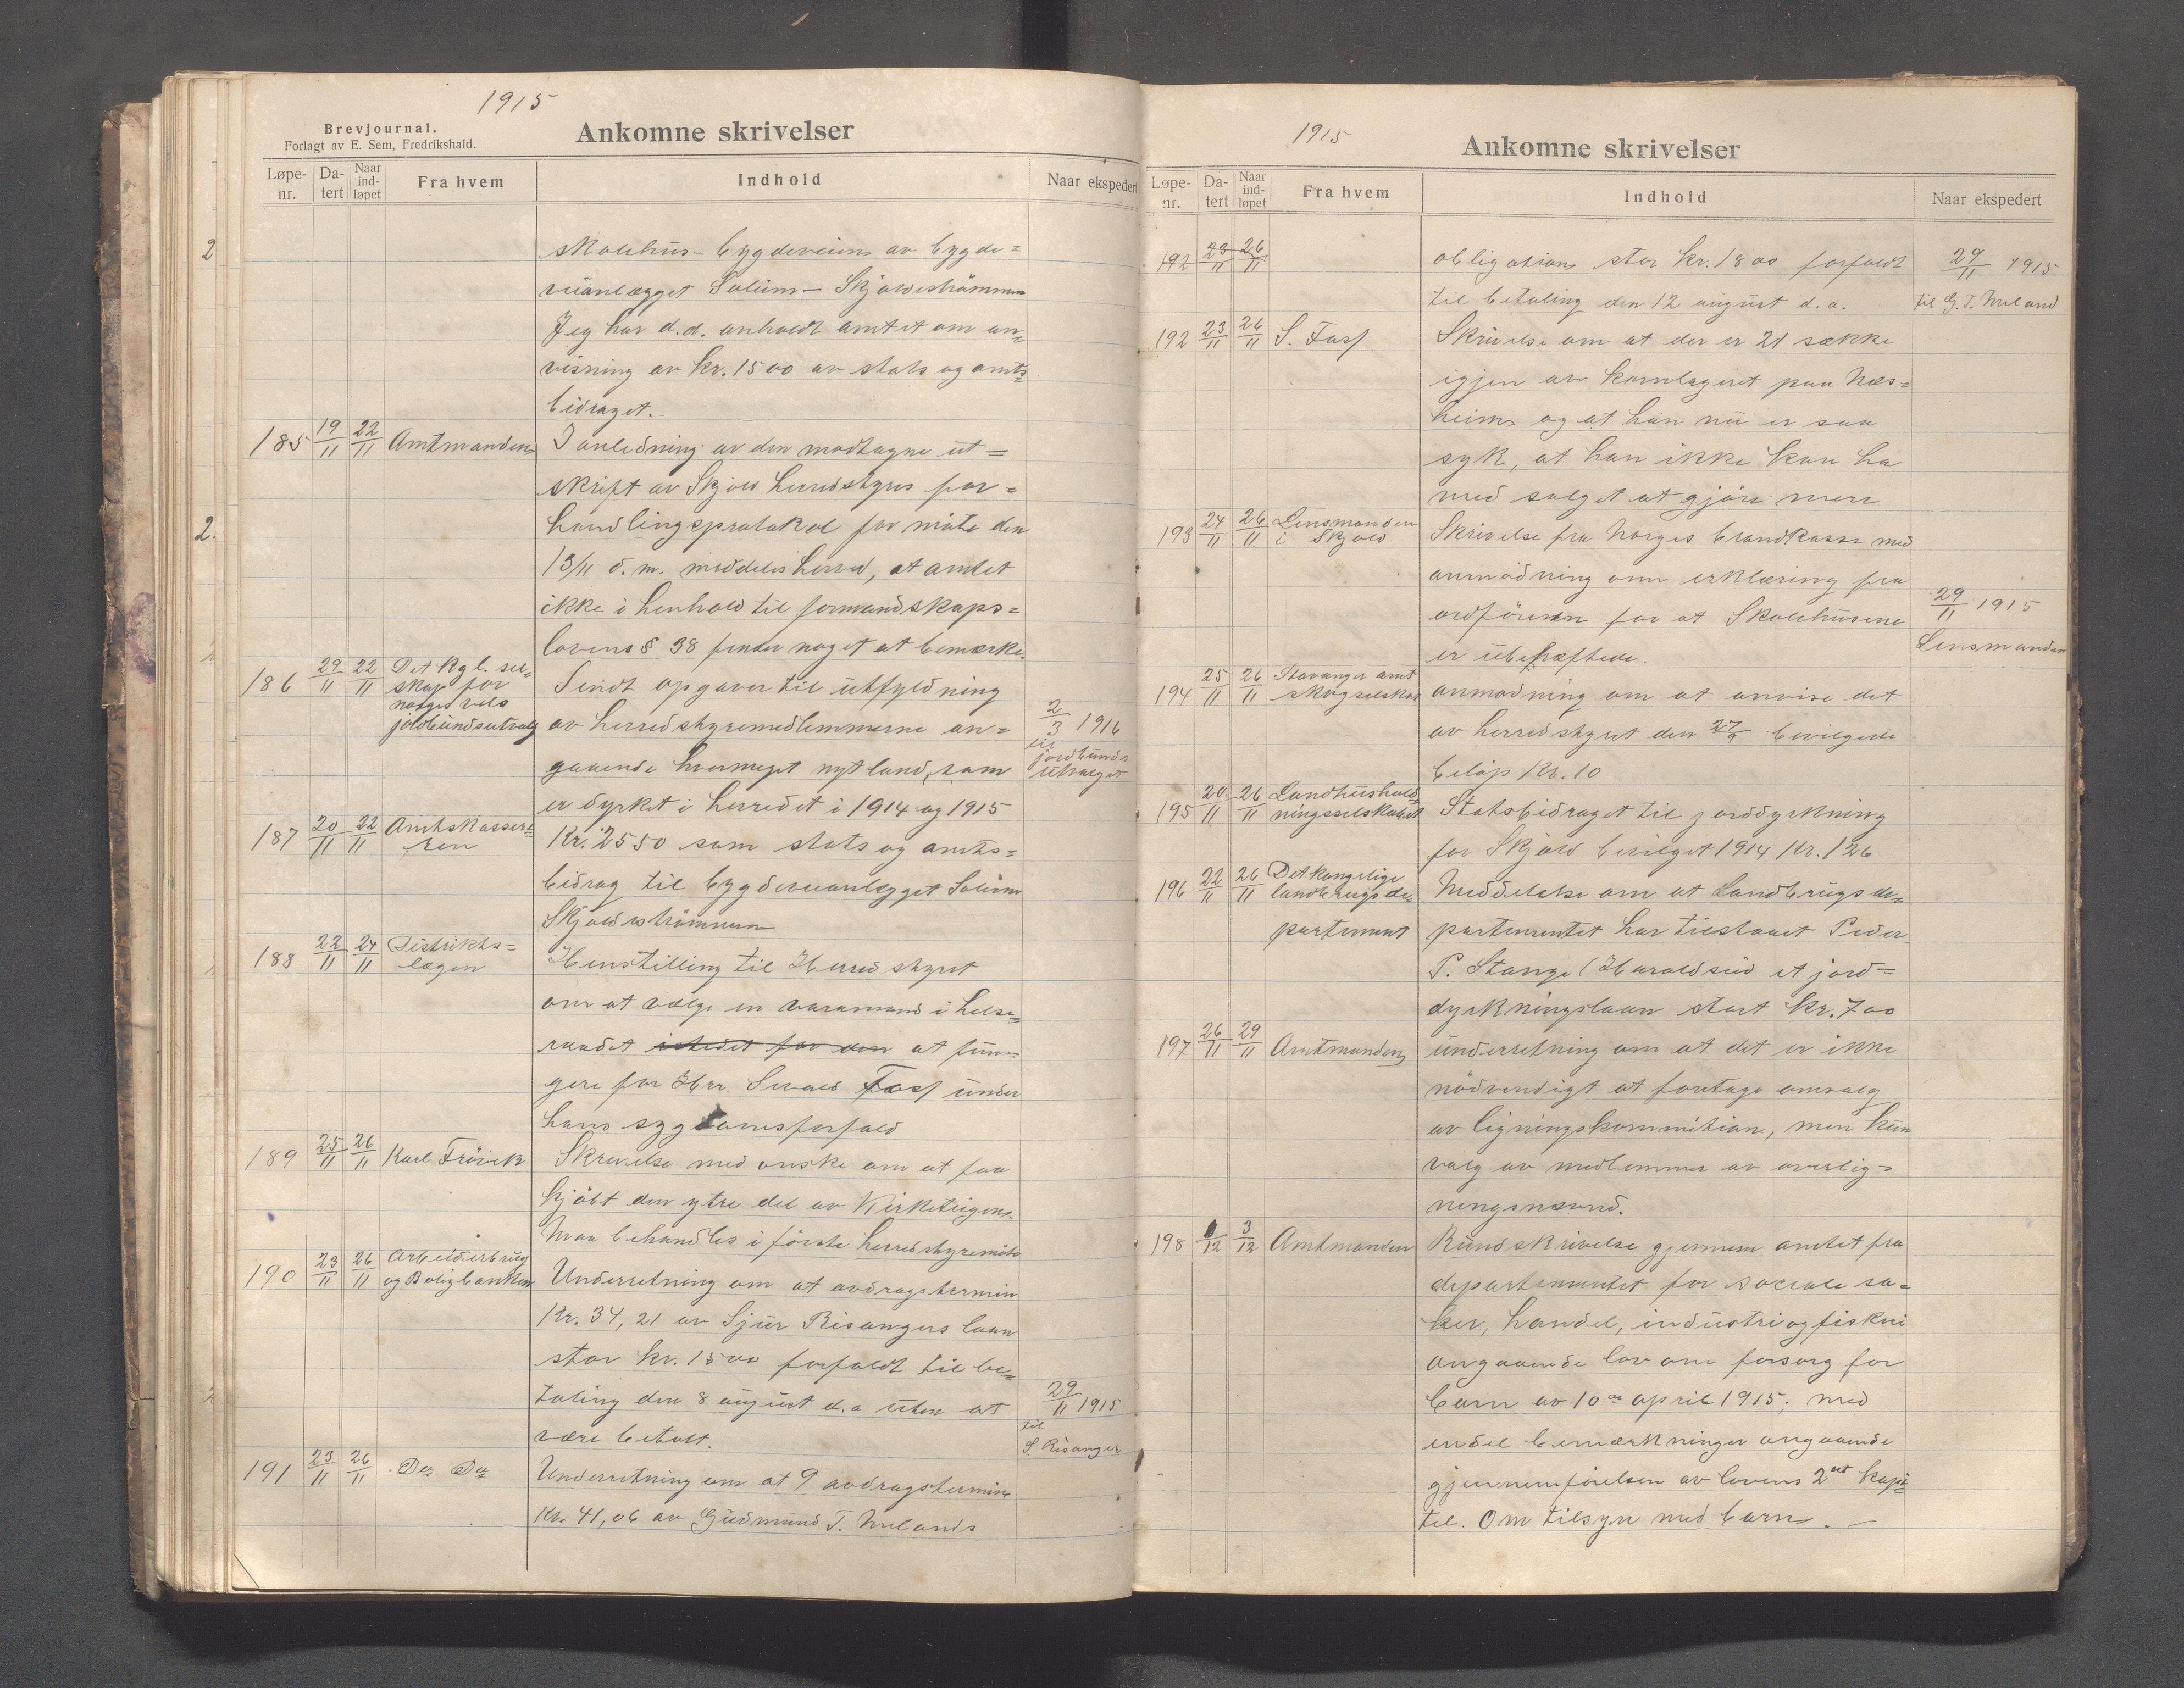 1915
Brevjournal.
Forlagt av E. Sem, Fredrikshald.
Ankomne skrivelser
Løpe-nr. Da-tert Naar ind-løpet Fra hvem Indhold Naar ekspedert
Skolehus- bygdeveien av bygde=
veianlægget Soleim - Skjoldestrømmen
Jeg har d.d. anholdt amtet om an=
visning av kr. 1500 av stats og amts=
bidraget.
185 19/11 22/11 Amtmanden I anledning av den mottagne ut=
skrift av Skjold herredstyres for=
handlingsprotokol for møte den
13/11 d.m. meddeles herred, at amtet
ikke i henhold til formandskaps=
lovens § 38 finder noget at bemærke.
186 29/11 22/11 Det kgl. sel=
skap for
norges vels
jordbundsutvalg
Sendt opgaver til utfyldning
av herredstyremedlemmerne an=
gaaende hvormeget nyt land, som
er dyrket i herredet i 1914 og 1915
2/3 1916
til
jordbunds
utvalget
187 20/11 22/11 Amtskassere=
ren
Kr. 2550 som stats og amts=
bidrag til bygdeveianlægget Soleim
Skjoldestrømmen
188 22/11 24/11 Distrikts=
lægen
Henstilling til Herredstyret
om at vælge en varamand i helse=
raadet istedet for den at fun=
gere for Hr. Sivald Foss under
hans sygdomsforfald
189 25/11 26/11 Karl Frövik Skrivelse med ønske om at faa
kjøbt den ytre del av Kirketeigen.
Maa behandles i første herredstyremøte
190 23/11 26/11 Arbeiderbruk
og Boligbanken
Underretning om at avdragstermin
Kr. 34,21 av Sjur Risangers laan
stor kr. 1500 forfaldt til be=
taling den 8 august d.a uten at
være betalt.
29/11 1915
til
S. Risanger
191 23/11 26/11 Do Do Underretning om at 9 avdragstermin
Kr. 41,06 av Gudmund T. Milands
1915
Ankomne skrivelser
Løpe-nr. Da-tert Naar ind-løpet Fra hvem Indhold Naar ekspedert
192 23/11 26/11 obligation stor kr. 1800 forfaldt 29/11 1915
til betaling den 12 august d.a. til G. T. Miland
192 23/11 26/11 S. Foss Skrivelse om at der er 21 sække
igjen av kornlageret paa Næs=
heim og at han nu er saa
syk, at han ikke kan ha
med salget at gjøre mere
193 24/11 26/11 Lensmanden
i Skjold
Skrivelse fra Norges brandkasse med
anmodning om erklæring fra
ordføreren for at Skolehusene
er ubehæftede.
29/11 1915
Lensmanden
194 25/11 26/11 Stavanger amt
skogselskap
anmodning om at anvise det
av herredstyret den 27/9 bevilgede
beløp Kr. 10
195 20/11 26/11 Landhushold=
ningsselskabet
Statsbidraget til jorddyrkning
for Skjold bevilget 1914 Kr. 126
196 22/11 26/11 Det kongelige
landbrugsde=
partement
Meddelelse om at Landbrugsde=
partementet har tilstaaet Peder
P. Stange (Haraldseid et jord=
dyrkningslaan stort Kr. 700
197 26/11 29/11 Amtmanden underretning om at det er ikke
nødvendigt at foretage omvalg
av ligningskommition, men kun
valg av medlemmer av overlig=
ningsnævnd.
198 1/12 3/12 Amtmanden Rundskrivelse gjennem amtet fra
departementet for sociale sa=
ker, handel, industri og fiskeri
angaaende lov om forsorg for
barn av 10de april 1915, med
endel bemærkninger angaaende
gjennemførelsen av lovens 2det kapi=
tel. Om tilsyn med barn. —